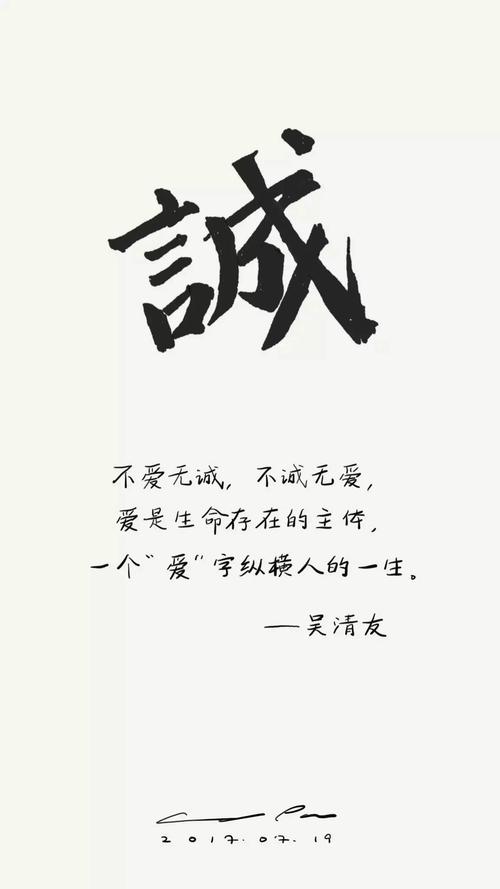 誠
不爱无诚，不诚无爱，
爱是生命存在的主体，
一个“爱”字纵横人的一生。
—吴清友
2017.07.19